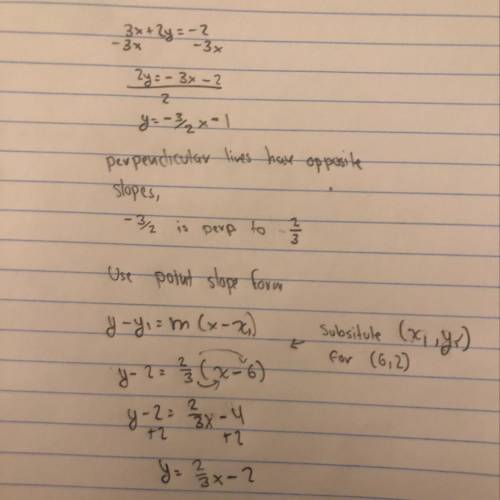 3x+2y=-2
-3x -3x
2y=-3x-2
2
y=-3/2x-1
perpendicular lines have opposite
slopes,
-3/2 is perp to 2/3
Use point slope form
y-y₁=m(x-x₁)
← Subsitute (x₁,y₁)
for (6,2)
y-2=2/3(x-6)
y-2=2/3x-4
+2 +2
y=2/3x-2